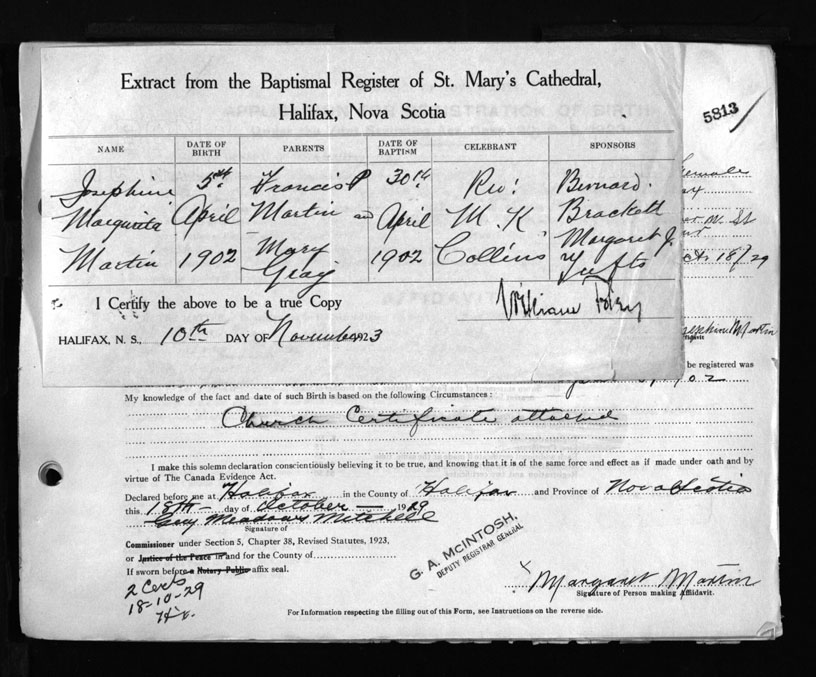 Extract from the Baptismal Register of St. Mary's Cathedral,
Halifax, Nova Scotia
5813
NAME DATE OF BIRTH PARENTS DATE OF BAPTISM CELEBRANT SPONSORS
Josephine 5th Francis P 30th Rev. Bernard
Margurita April Martin and April M. K Brackett
Martin 1902 Mary Gray 1902 Collins Margaret J. Tufts
female
St
Oct 18/29
I Certify the above to be a true Copy
HALIFAX, N. S., 10th DAY OF November 1923
Josephine Martin
be registered was
My knowledge of the fact and date of such Birth is based on the following Circumstances :
Church Certificate attached
I make this solemn declaration conscientiously believing it to be true, and knowing that it is of the same force and effect as if made under oath and by
virtue of The Canada Evidence Act.
Declared before me at Halifax in the County of Halifax and Province of Nova Scotia
this 18th day of October 1929
Meadows Mitchell
Signature of
Commissioner under Section 5, Chapter 38, Revised Statutes, 1923,
or Justice of the Peace in and for the County of
If sworn before a Notary Public affix seal.
G. A. McINTOSH,
DEPUTY REGISTRAR GENERAL
2 Certs
18-10-29
Margaret Martin
Signature of Person making Affidavit.
For Information respecting the filling out of this Form, see Instructions on the reverse side.